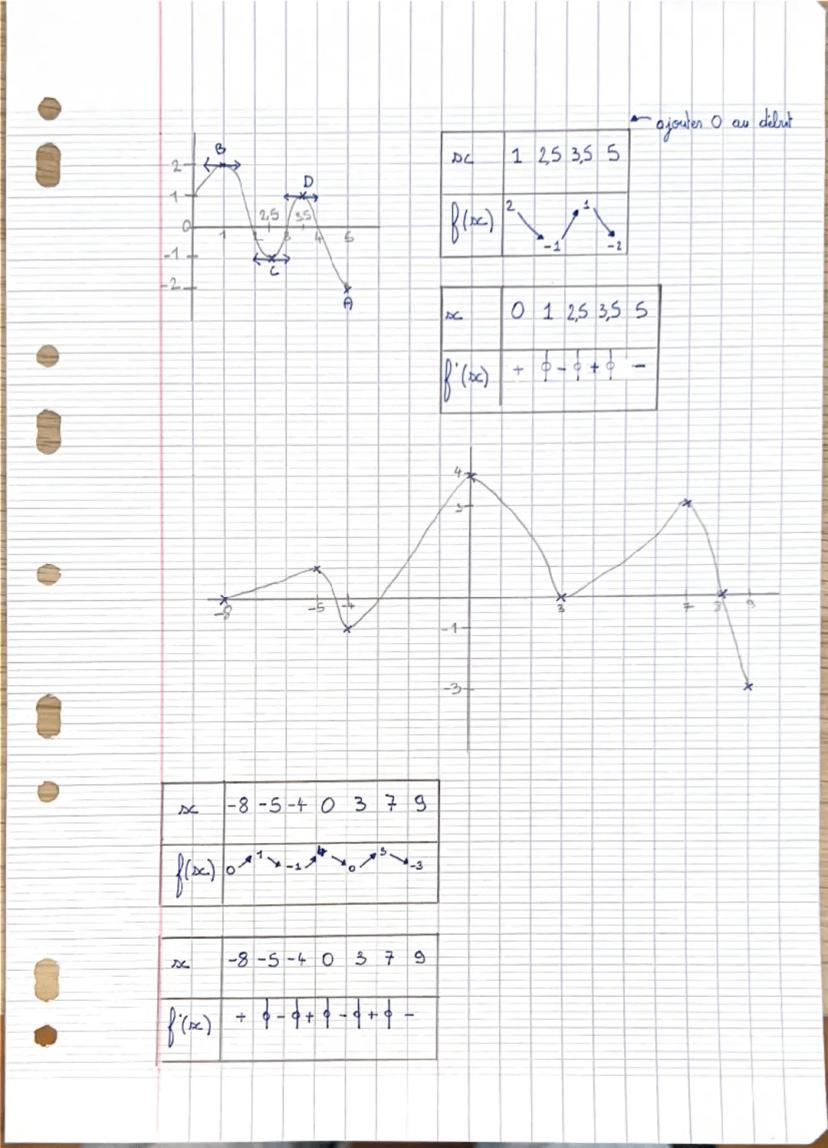 ajouter 0 au début
B
2
D
1
2,5 3,5
0 1 2 3 4 5
-1
C
-2
A
x 1 2,5 3,5 5
f(x) 2 ↘ -1 ↗ 1 ↘ -2
x 0 1 2,5 3,5 5
f'(x) + ϕ - ϕ + ϕ -
4
3
-8 -5 -4 3 7 8 9
-1
-3
x -8 -5 -4 0 3 7 9
f(x) 0 ↗ 1 ↘ -1 ↗ 4 ↘ 0 ↗ 3 ↘ -3
x -8 -5 -4 0 3 7 9
f'(x) + ϕ - ϕ + ϕ - ϕ + ϕ -